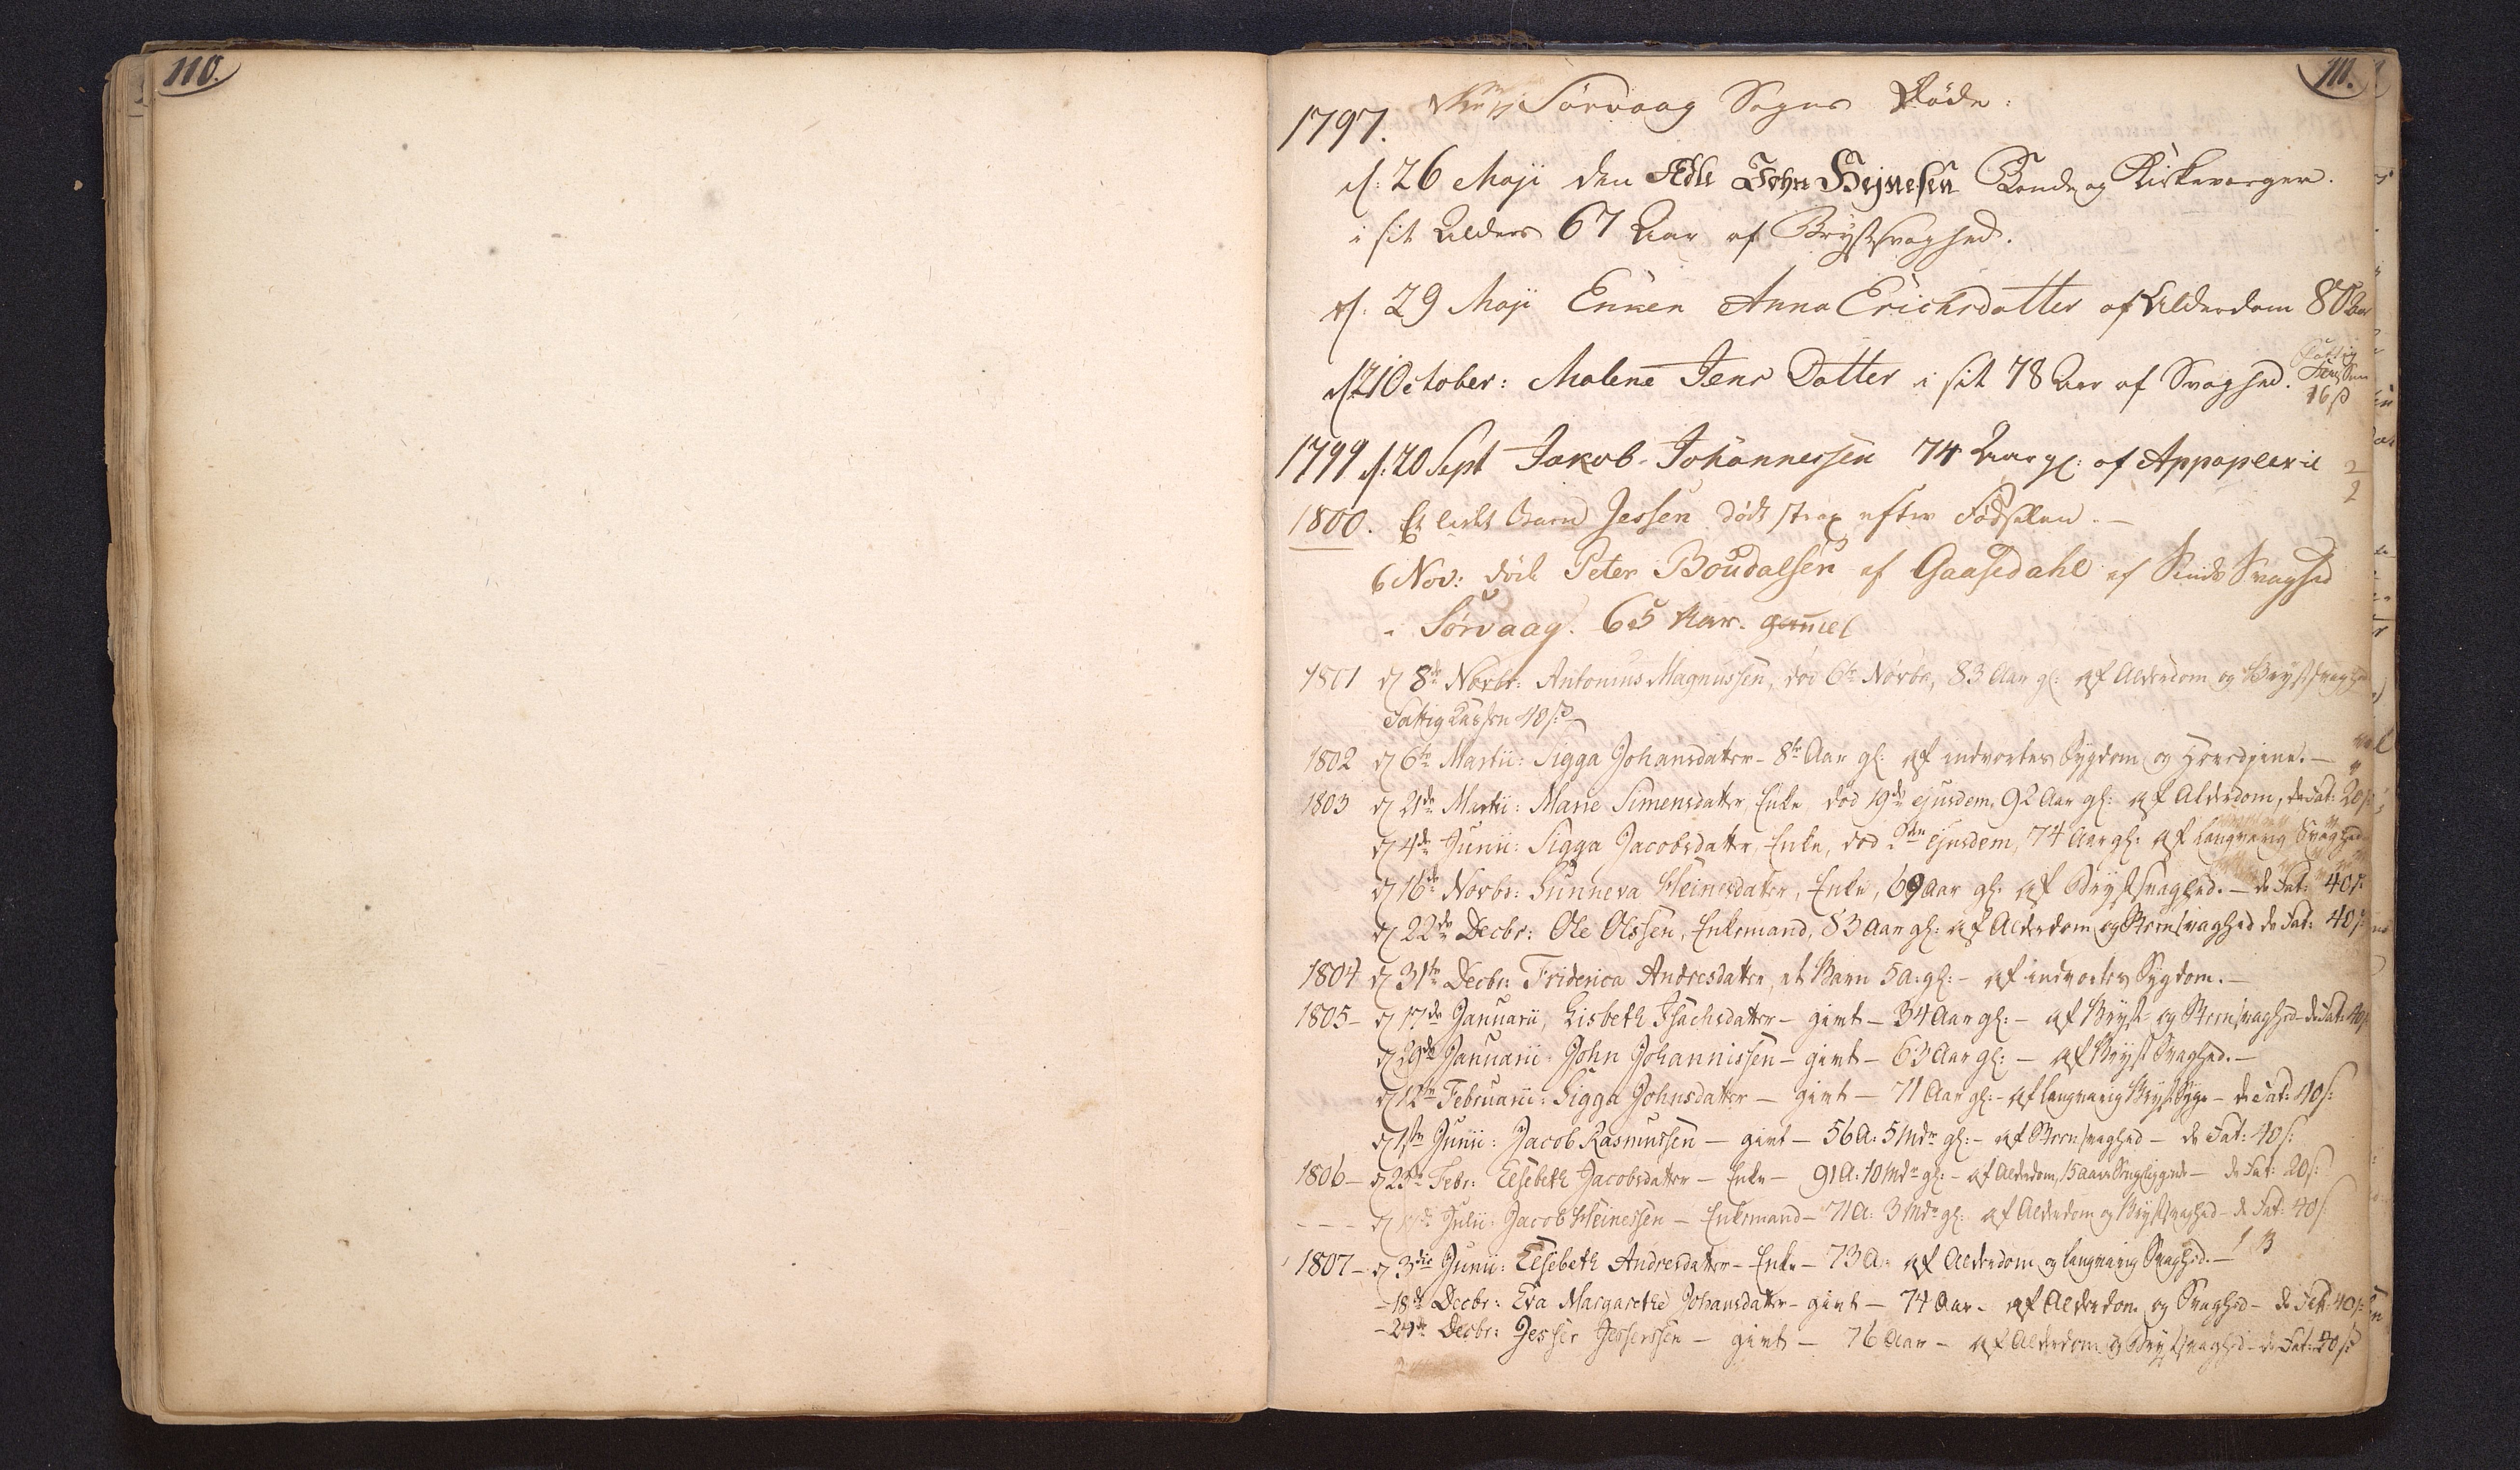 110.
111.
Sørvaag Sogns Døde:
1797.
d: 26 Maji den Ædle John Hejnesen Bonde og Kirkeverger.
i sit Alders 67 Aar af Brystsvaghed.
d: 29 Maji Enken Anna Erichsdatter af Alderdom 80 Aar
d. 21 October: Malene Jens Datter i sit 78 Aar af Svaghed.
Fattig
16 ß
1799 d: 20 Sept Jakob Johannessen 74 Aar gl: af Appoplexie
2
2
1800. Et lidet Barn Jessen døde strax efter Fødselen. —
6 Nov: døde Peter Boudalsen af Gaasedahl af Svaghed
i Sørvaag. 65 Aar. gam̄el
1801 d 8de Novbr: Antonius Magnussen, død 6te Novbr, 83 Aar gl: af Alderdom og Brystsvaghed
Fattig Kassen 40 ß
1802 d 6te Martii: Sigga Johansdatter - 8te Aar gl: af indvortes Sygdom og Hovedpine. —
1803 d 21de Martii: Marie Simensdatter, Enke, død 19de ejusdem, 92 Aar gl: af Alderdom, de Fat: 20 ß
d 4de Junii: Sigga Jacobsdatter, Enke, død 2den ejusdem, 74 Aar gl: af langvarig Svaghed
d 16de Novbr: Sunneva Heinesdatter, Enke, 69 Aar gl: af Brystsvaghed. — de Fat: 40 ß
d 22de Decbr: Ole Olssen, Enkemand, 83 Aar gl: af Alderdom og Steensvaghed de Fat: 40 ß
1804 d 31te Decbr: Friderica Andresdatter, et Barn 5 A: gl: - af indvortes Sygdom. —
1805 - d 17de Januarii, Lisbeth Isachsdatter — givt — 34 Aar gl: — af Bryst- og Steensvaghed - de Fat: 40 ß
d 29de Januarii: John Johannissen — givt — 63 Aar gl: — af Bryst Svaghed. —
d 12te Februarii: Sigga Johnsdatter — givt — 71 Aar gl: - af langvarig Bryst Syge — de Fat: 40 ß:
d 1ste Junii: Jacob Rasmussen — givt — 56 A: 5 Mdr gl: - af Steensvaghed — de Fat: 40 ß:
1806 — d 23de Febr: Elsebeth Jacobsdatter — Enke — 91 A: 10 Mdr gl: - af Alderdom, 15 Aars Sengeliggende — de Fat: 20 ß:
- - - d 17de Julii: Jacob Heinessen — Enkemand — 71 A: 3 Mdr gl: af Alderdom og Brystsvaghed - de Fat: 40 ß
1807 - d 3die Junii: Elsebeth Andresdatter - Enke — 73 A: af Alderdom og langvarig Svaghed. —
- 18de Decbr: Eva Margarethe Johansdatter - givt — 74 Aar - af Alderdom og Svaghed — de Fat: 40 ß:
- 24de Decbr: Jesser Jessersen — givt — 76 Aar — af Alderdom og Brystsvaghed - de Fat: 40 ß